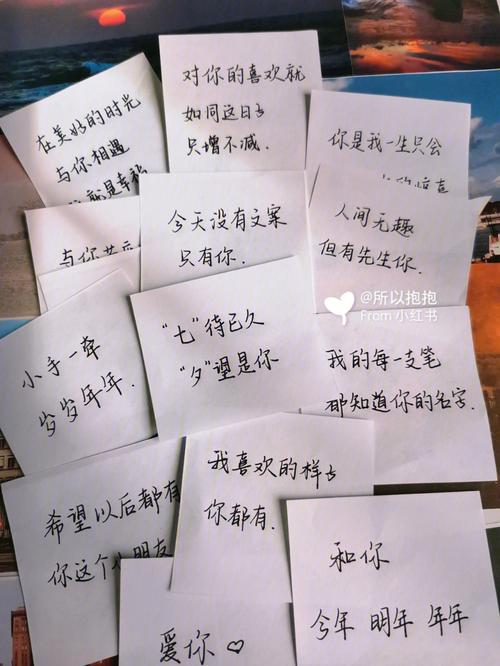 在美好的时光
与你相遇
就是幸福
对你的喜欢就
如同这日子
只增不减.
你是我一生只会
与你共
今天没有文案
只有你.
人间无趣
但有先生你.
@所以抱抱
From 小红书
小手一牵
岁岁年年.
“七”待已久
“夕”望是你
我的每一支笔
都知道你的名字.
希望以后都有
你这个小朋友
我喜欢的样子
你都有.
和你
今年 明年 年年
爱你♡